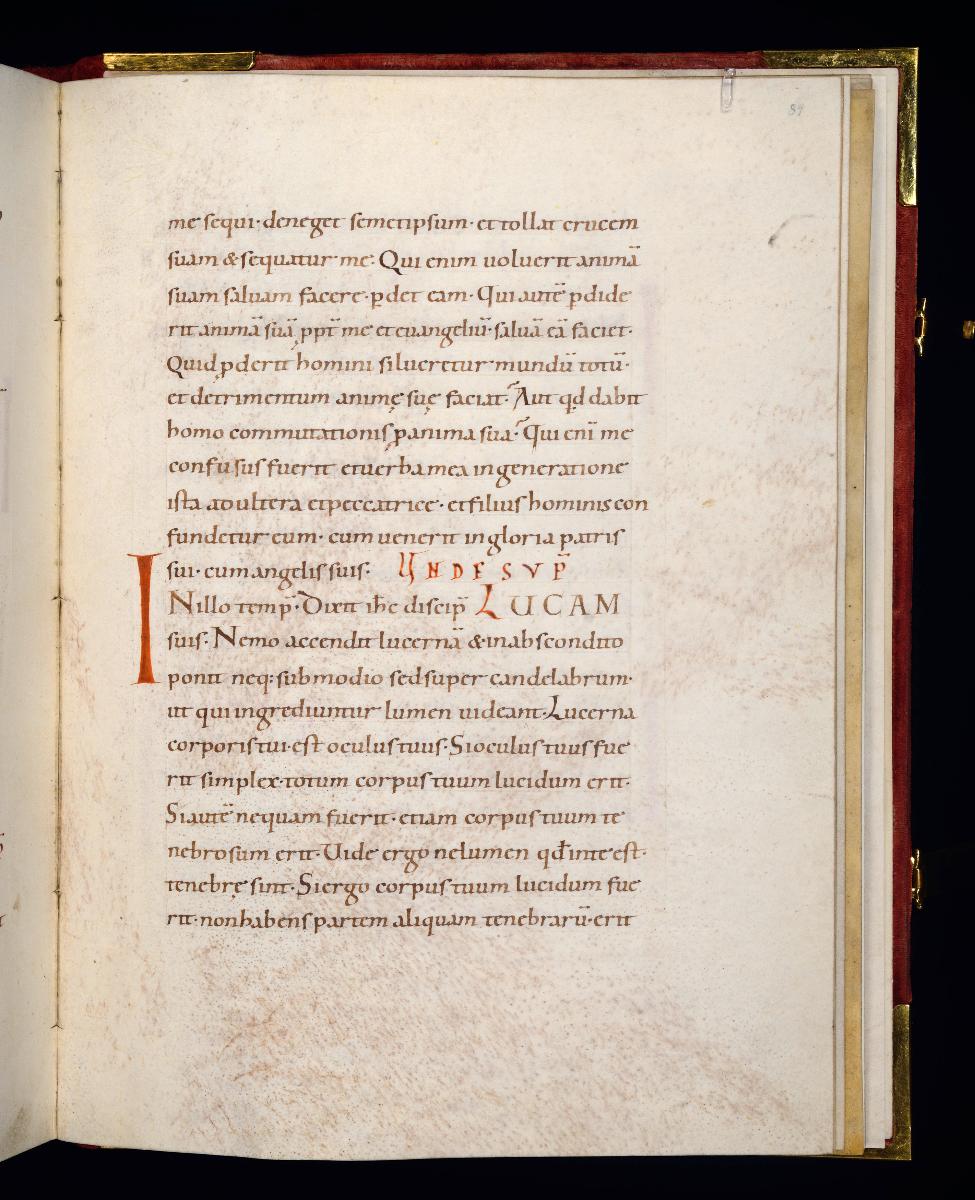 89
me sequi· deneget semetipsum· et tollat crucem
suam & sequatur me· Qui enim uoluerit animā
suam saluam facere· ꝑdet eam· Qui autē ꝑdide
rit animā suā ꝓpt̄ me et euangeliū· saluā eā faciet·
Quid ꝓderit homini si lucretur mundū totū·
et detrimentum animę suę faciat· Aut qd dabit
homo commutationis ꝓ anima sua· Qui enī me
confusus fuerit et uerba mea in generatione
ista adultera et peccatrice· et filius hominis con
fundetur eum· cum uenerit in gloria patris
sui· cum angelis suis· UNDE SUP̄
IN illo temp̄· Dixit ihc discip̄ LUCAM
suis· Nemo accendit lucernā & in abscondito
ponit neq: sub modio sed super candelabrum·
ut qui ingrediuntur lumen uideant· Lucerna
corporis tui· est oculus tuus· Si oculus tuus fue
rit simplex· totum corpus tuum lucidum erit·
Si autē nequam fuerit· etiam corpus tuum te
nebrosum erit· Uide ergo ne lumen qđ in te est·
tenebrę sint· Si ergo corpus tuum lucidum fue
rit· non habens partem aliquam tenebrarū· erit